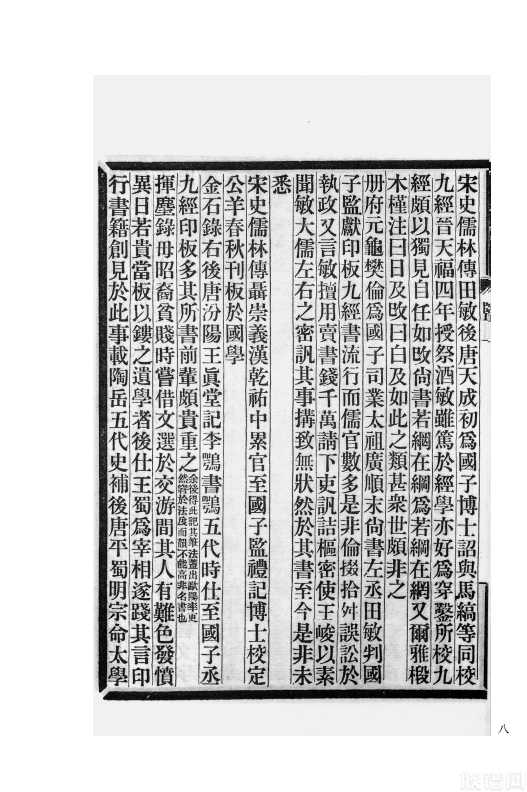 宋史儒林傳田敏後唐天成初爲國子博士詔與馬縞等同校
九經晉天福四年授祭酒敏雖篤於經學亦好爲穿鑿所校九
經頗以獨見自任如改尙書若網在綱爲若綱在網又爾雅椴
木槿注曰日及改曰白及如此之類甚衆世頗非之
册府元龜樊倫爲國子司業太祖廣順末尙書左丞田敏判國
子監獻印板九經書流行而儒官數多是非倫掇拾舛誤訟於
執政又言敏擅用賣書錢千萬請下吏訊詰樞密使王峻以素
聞敏大儒左右之密訊其事搆致無狀然於其書至今是非未
悉
宋史儒林傳聶崇義漢乾祐中累官至國子監禮記博士校定
公羊春秋刊板於國學
金石錄右後唐汾陽王眞堂記李鶚書鶚五代時仕至國子丞
九經印板多其所書前輩頗貴重之余後得此記其筆法蓋出歐陽率更
然窘於法度而韻不能高非名書也
揮麈錄毋昭裔貧賤時嘗借文選於交游間其人有難色發憤
異日若貴當板以鏤之遺學者後仕王蜀爲宰相遂踐其言印
行書籍創見於此事載陶岳五代史補後唐平蜀明宗命太學
八
族谱网